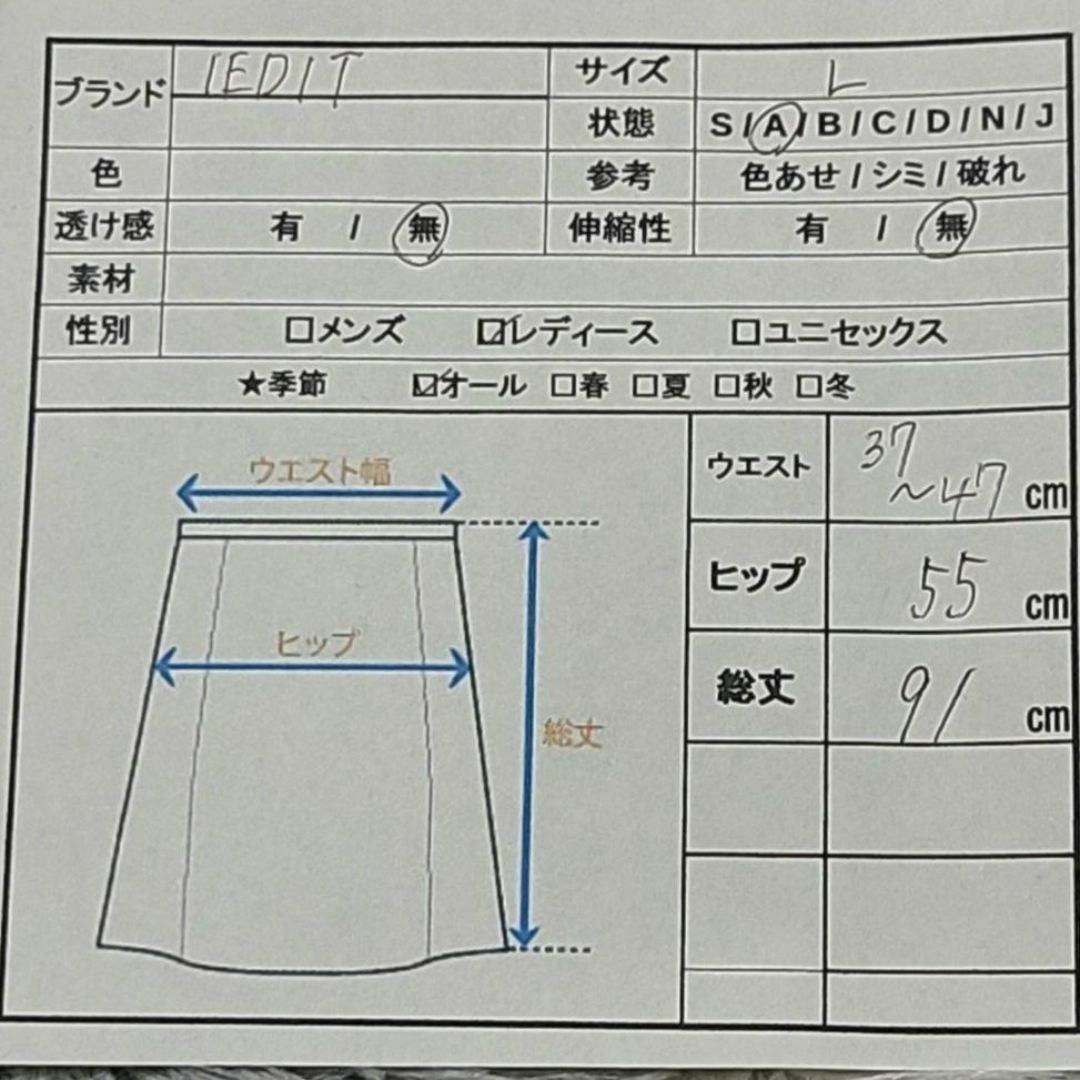 ブランド IEDIT サイズ L
状態 S/A/B/C/D/N/J
色 参考 色あせ/シミ/破れ
透け感 有 / 無 伸縮性 有 / 無
素材
性別 □メンズ ☑レディース □ユニセックス
★季節 ☑オール □春 □夏 □秋 □冬
ウエスト幅
ヒップ
総丈
ウエスト 37
~47 cm
ヒップ 55 cm
総丈 91 cm